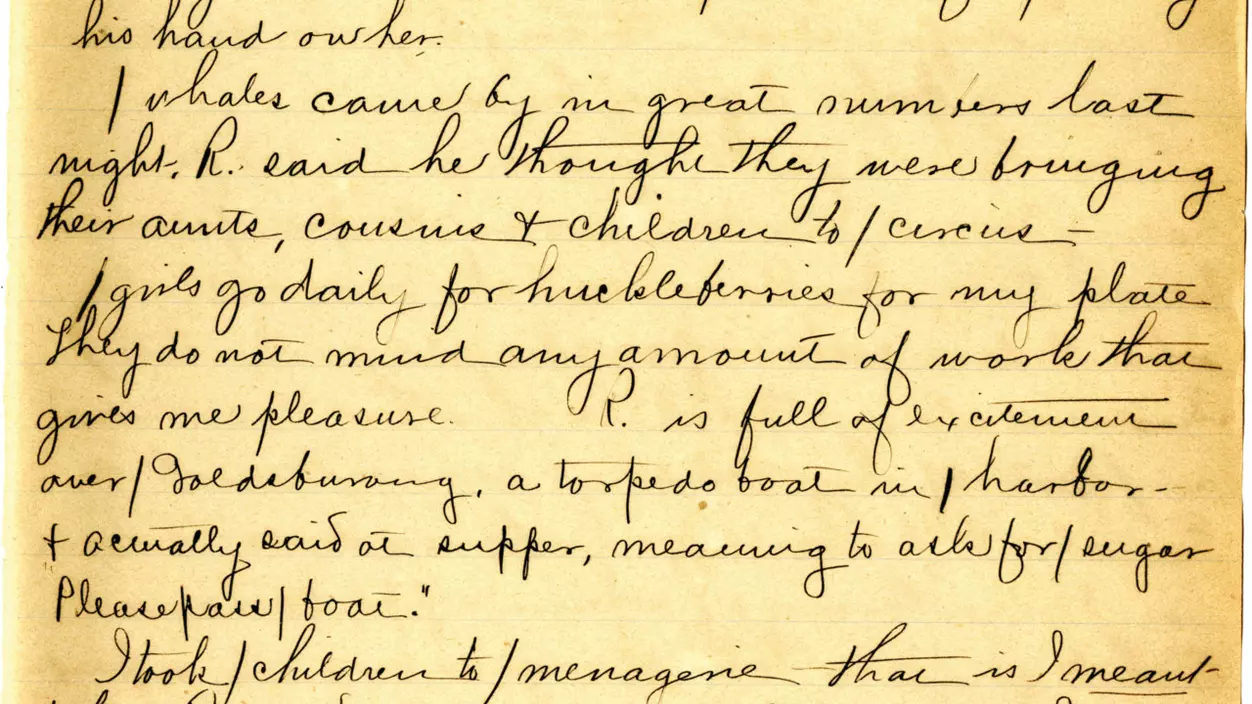 his hand over her.
/ whales came by in great numbers last
night. R. said he thought they were bringing
their aunts, cousins & children to / circus -
/ girls go daily for huckleberries for my plate
They do not mind any amount of work that
gives me pleasure. R. is full of excitement
over / Goldsburoug, a torpedo boat in / harbor -
& actually said at supper, meaning to ask for / sugar
Please pass / boat."
I took / children to / menagerie - that is I meant